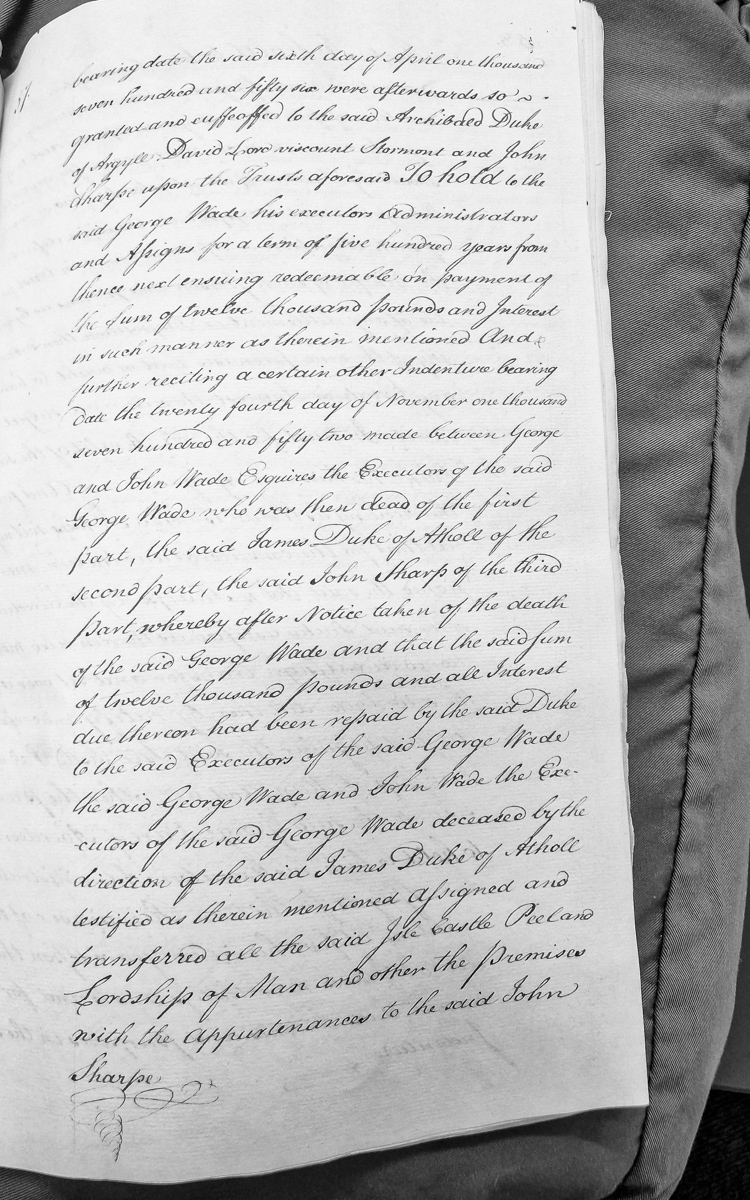 bearing date the said sixth day of April one thousand
seven hundred and fifty six were afterwards so
granted and euffeoffed to the said Archibald Duke
of Argyle David Lord viscount Stormont and John
Sharpe upon the Trusts aforesaid To hold to the
said George Wade his executors Administrators
and Assigns for a term of five hundred years from
thence next ensuing redeemable on payment of
the sum of twelve thousand pounds and Interest
in such manner as therein mentioned And
further reciting a certain other Indenture bearing
Date the twenty fourth day of November one thousand
seven hundred and fifty two made between George
and John Wade Esquires the Executors of the said
George Wade who was then dead of the first
part, the said James Duke of Atholl of the
second part, the said John Sharp of the third
part, whereby after Notice taken of the death
of the said George Wade and that the said sum
of twelve thousand pounds and all Interest
due thereon had been repaid by the said Duke
to the said Executors of the said George Wade
the said George Wade and John Wade the Exe-
cutors of the said George Wade deceased by the
direction of the said James Duke of Atholl
testified as therein mentioned assigned and
transferred all the said Isle Castle Peel and
Lordship of Man and other the premises
with the appurtenances to the said John
Sharpe